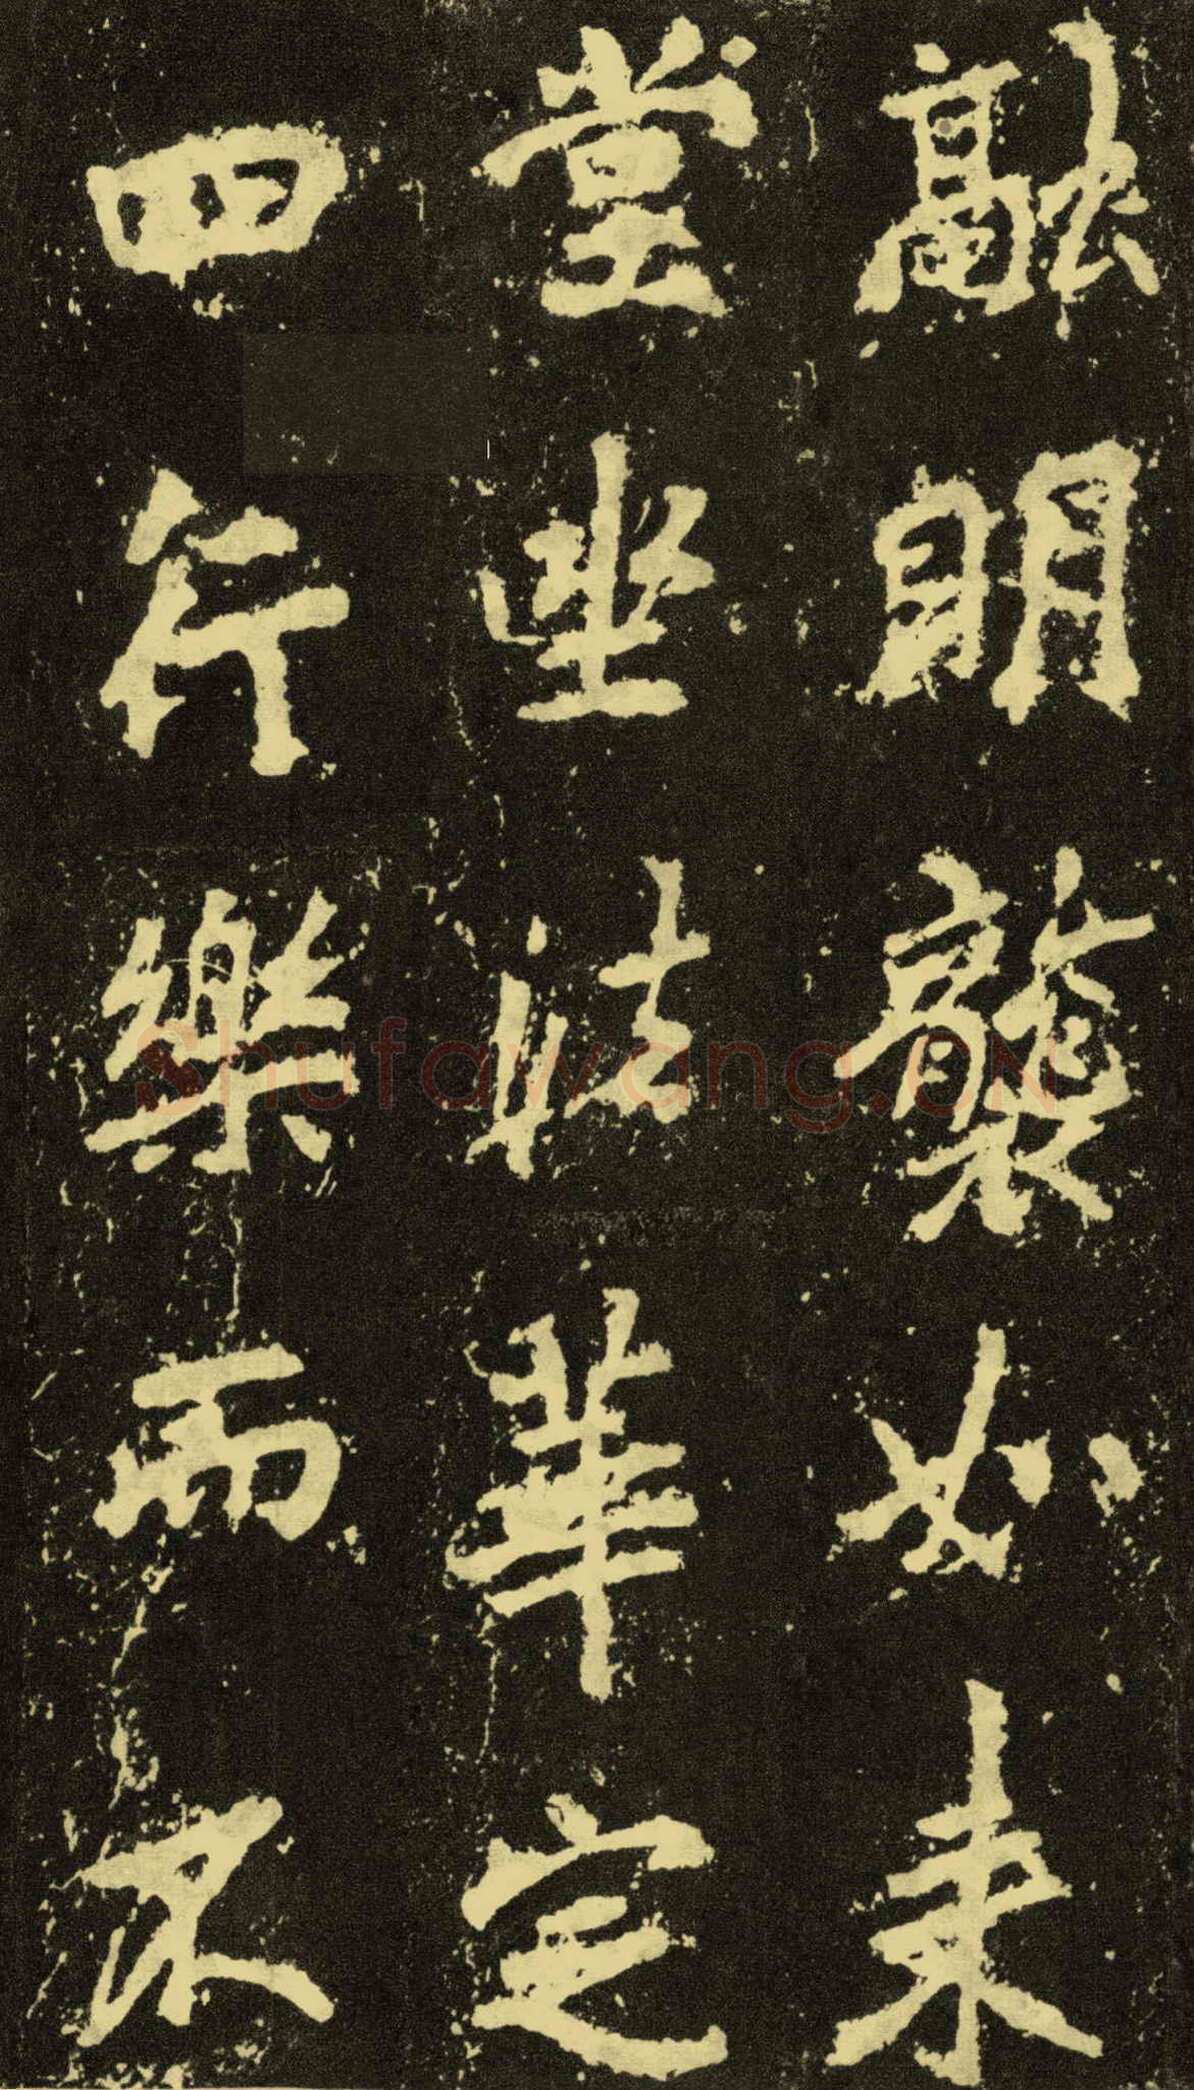 融明襲如来
堂坐法華定
四行樂而不
Shufawang.CN